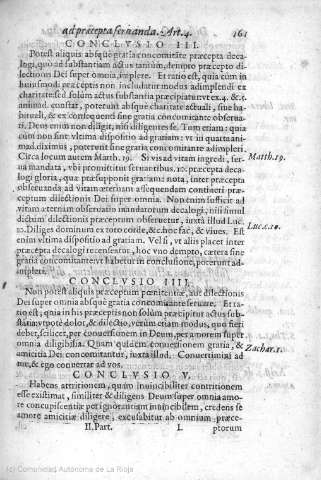 ad præcepta servanda. Art. 4. 161
CONCLVSIO III.
Potest aliquis absque gratia concomitante præcepta decalogi,
quo ad substantiam actus tantum, dempto præcepto dilectionis
Dei super omnia, implere. Et ratio est, quia cum in
huiusmodi præceptis non includitur modus adimplendi ex
charitate, sed solum actus substantia præcipiatur,
constat, poterunt absque charitate actuali, sine habituali,
& ex consequenti sine gratia concomitante observari.
Deus enim non diligit, nisi diligentes se. Tum etiam: quia
cum non sint ultima dispositio ad gratiam: ut in quarta
diximus, poterunt sine gratia concomitante adimpleri.
Circa locum autem Matth. 19. Si vis ad vitam ingredi, serva
mandata, ubi promittitur servantibus 10. præcepta decalogi
gloria, quæ præsuponit gratiam: nota, inter præcepta
observanda ad vitam æternam assequendam contineri præceptum
dilectionis Dei super omnia. Non enim sufficit ad
vitam æternam observatio mandatorum decalogi, nisi simul
dictum dilectionis præceptum observetur, iuxta illud Luc.
10. Diliges dominum ex toto corde, &c. hoc fac, & vives. Est
enim ultima dispositio ad gratiam. Vel si, ut aliis placet inter
præcepta decalogi recensetur, hoc uno dempto, cætera sine
gratia concomitante, ut habetur in conclusione, poterunt adimpleri.
Matth. 19.
Luc. c. 10.
CONCLVSIO IIII.
Non potest aliquis præceptum pœnitentiæ, aut dilectionis
Dei super omnia absque gratia concomitante servare. Et ratio
est, quia in his præceptis non solum præcipitur actus substantia,
utpote dolor, & dilectio, verum etiam modus, quo fieri
debet, scilicet, per conversionem in Deum, per amorem super
omnia diligibilia. Quam quidem conversionem gratia, &
amicitia Dei concomitantur, iuxta illud. Convertimini ad
me, & ego convertar ad vos.
Zachar. 1.
CONCLVSIO V.
Habens attritionem, quam invincibiliter contritionem
esse existimat, similiter & diligens Deum super omnia amore
concupiscentiæ per ignorantiam invincibilem, credens se
amore amicitiæ diligere, excusabitur ab omnium præce-
II. Part. L ptorum
(c) Comunidad Autónoma de La Rioja